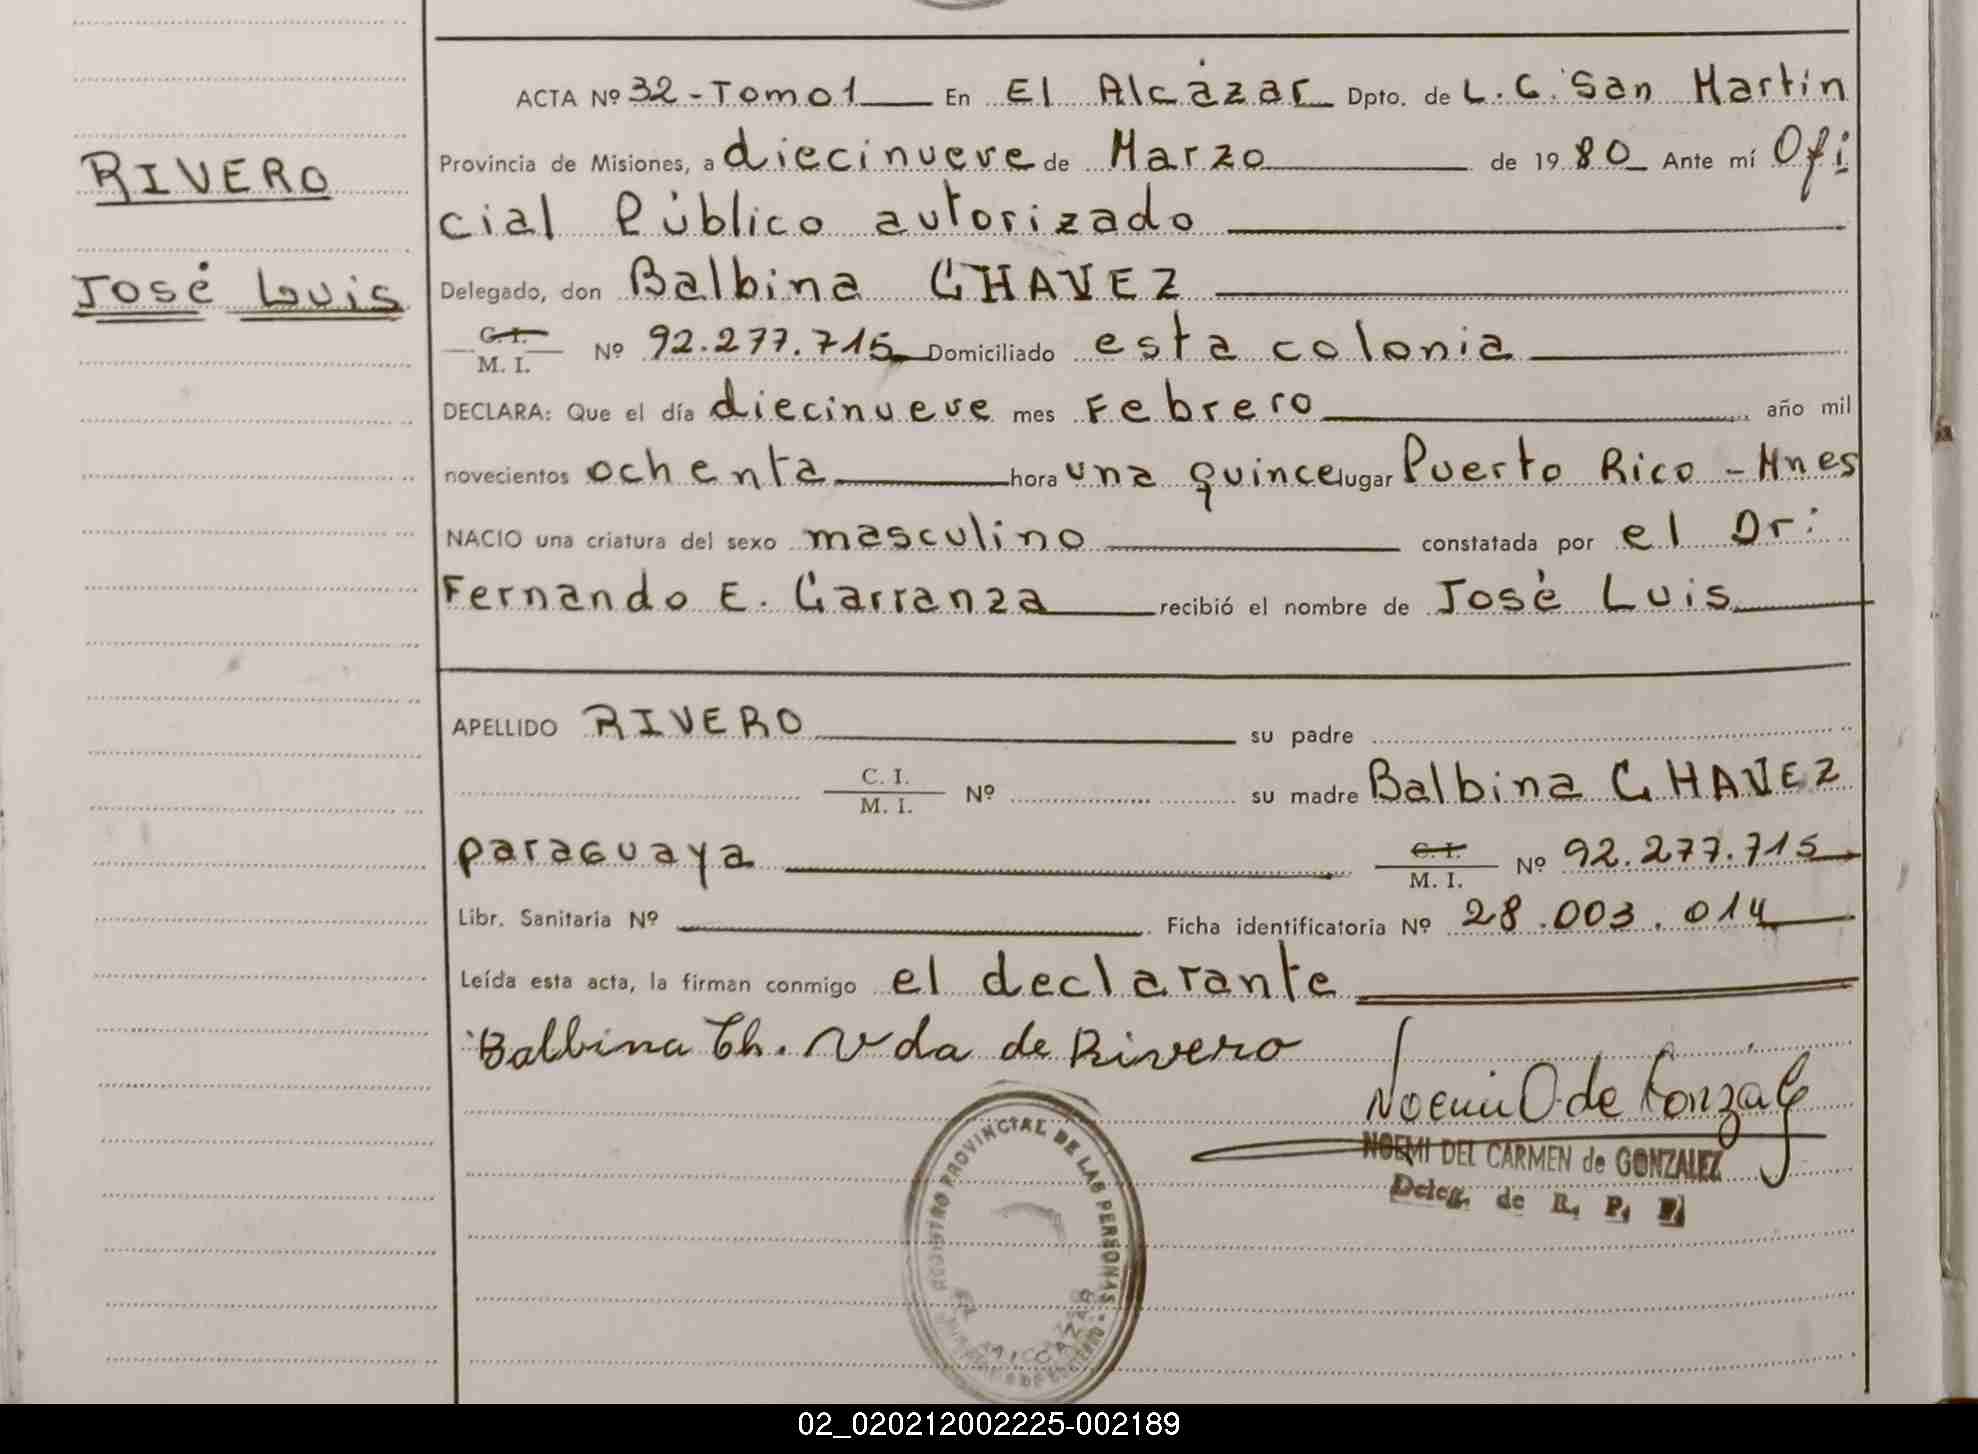 ACTA Nº 32 - Tomo 1 En El Alcázar Dpto. de L. G. San Martín
Provincia de Misiones, a diecinueve de Marzo de 1980 Ante mí Ofi
cial Público autorizado
RIVERO
José Luis
Delegado, don Balbina CHAVEZ
C. I.
M. I. Nº 92.277.715 Domiciliado esta colonia
DECLARA: Que el día diecinueve mes Febrero año mil
novecientos ochenta hora una quince lugar Puerto Rico - Mnes
NACIO una criatura del sexo masculino constatada por el Dr:
Fernando E. Carranza recibió el nombre de José Luis
APELLIDO RIVERO su padre
C. I.
M. I. Nº su madre Balbina CHAVEZ
paraguaya C. I.
M. I. Nº 92.277.715
Libr. Sanitaria Nº Ficha identificatoria Nº 28.003.014
Leída esta acta, la firman conmigo el declarante
Balbina Ch. Vda de Rivero
Noemi O. de Gonzalez
NOEMI DEL CARMEN de GONZALEZ
Deleg. de R. P. P.
REGISTRO PROVINCIAL DE LAS PERSONAS
EL ALCAZAR
02_020212002225-002189